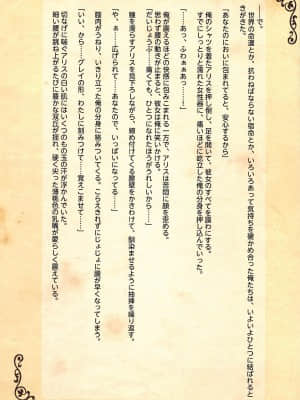 で。
世界の命運とか、抗わねばならない宿命とか、いろいろあって気持ちを確かめ合った俺たちは、いよいよひとつに結ばれると
きがきた。
「あなたのにおいに包まれてると、安心するから」
俺のシャツを着たアリスを押し倒し、足を開いて、彼女のすべてを露わにする。
すでにしっとりと濡れた女性器に、痛いほどに屹立した俺の分身を押し込んでいった。
「あっ、ふわぁぁっ……」
俺が震えるほどの快感に包みこまれる一方で、アリスは苦悶に顔を歪める。
思わず腰の動きが止まると、彼女は俺に笑いかけ、
「だいじょうぶ……痛くても、ひとつになれたほうがうれしいから……」
瞳を濡らすアリスを見下ろしながら、締め付けてくる膣壁をかきわけて、馴染ませるように抽挿を繰り返す。
「や、ぁ……広げられて……あなたので、いっぱいになってる……」
膣肉がうねり、いきり立った俺の分身に絡みついてくる。こらえきれずにじょじょに腰が早くなってしまう。
「いい、から……グレイの形、わたしに刻みつけて……覚えこませて……」
切なげに喘ぐアリスの白い肌にはいくつもの玉の汗が浮かんでいた。
細い腰が跳ね上がるたびに双丘が揺れ、硬く尖った薄桃色の乳首が愛らしく震えている。